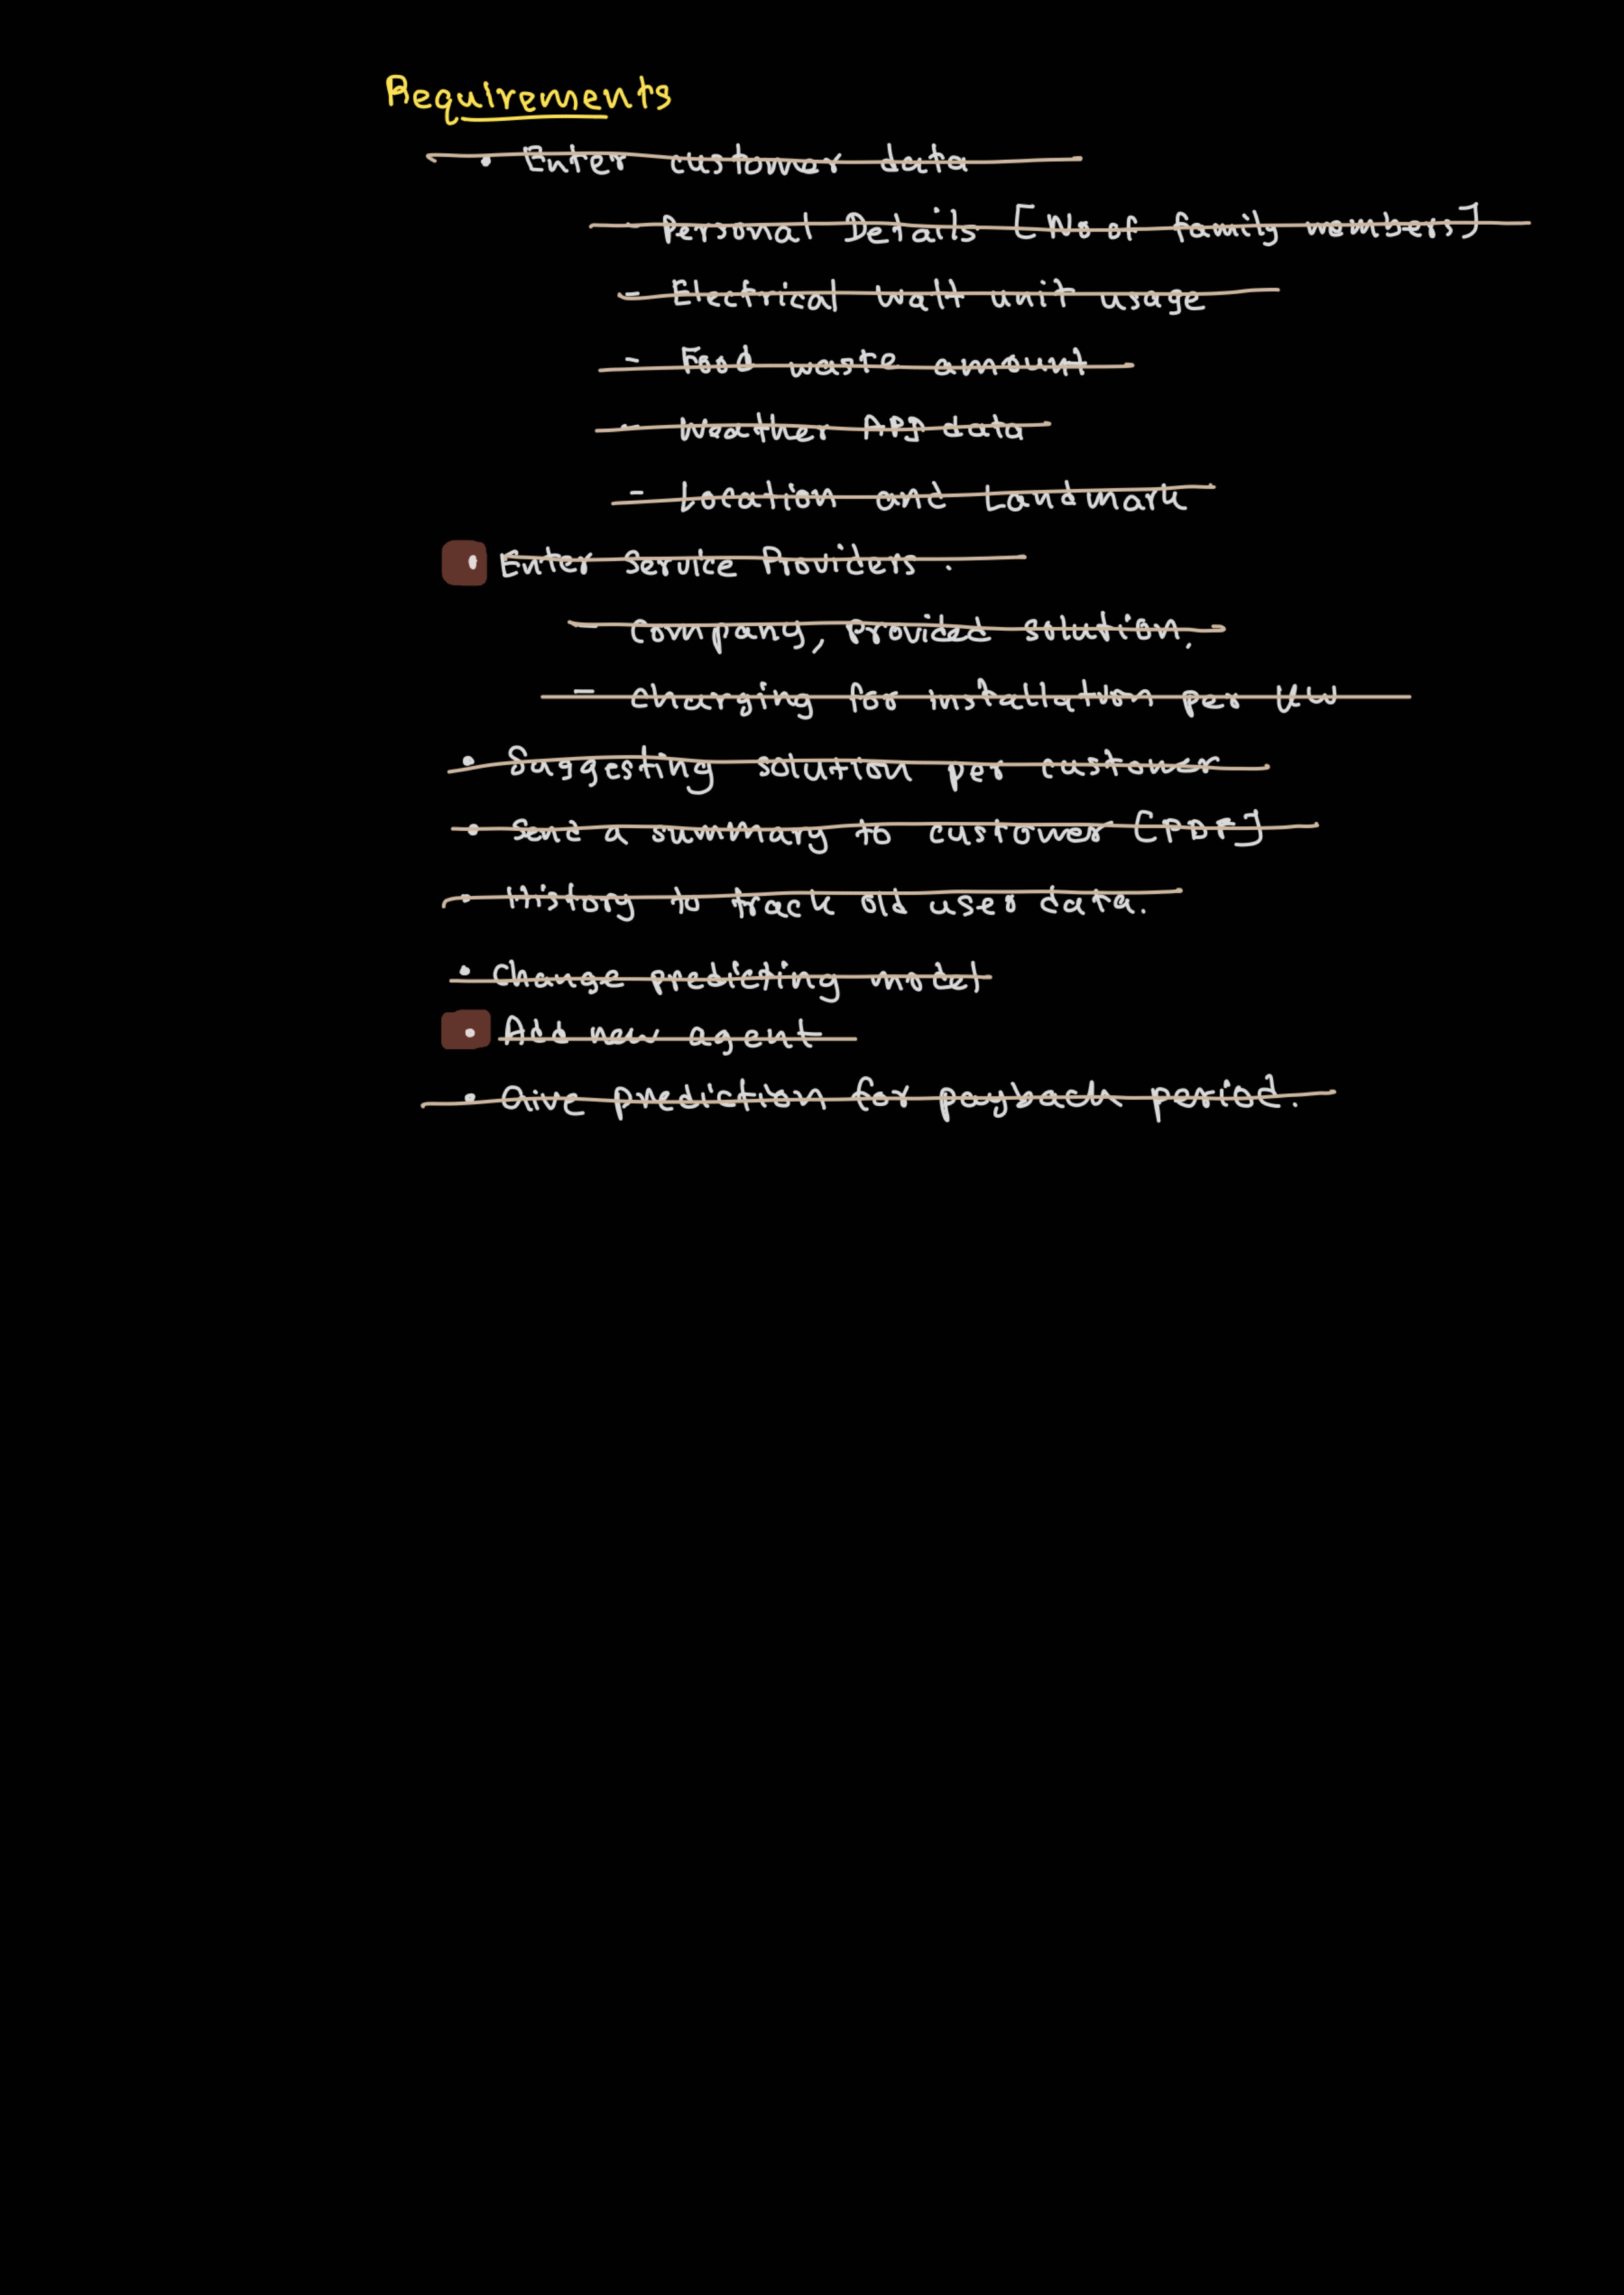 Requirements
• Enter customer data
- Personal Details [No of family members]
- Electrical watt unit usage
- Food waste amount
- Weather API data
- Location and Landmark
• Enter Service Providers.
- Company, Provided solution.
- Charging for installation per kW
• Suggesting solution per customer
• Send a summary to customer [PDF]
• History to track old user data.
• Change predicting model
• Add new agent
• Give prediction for payback period.